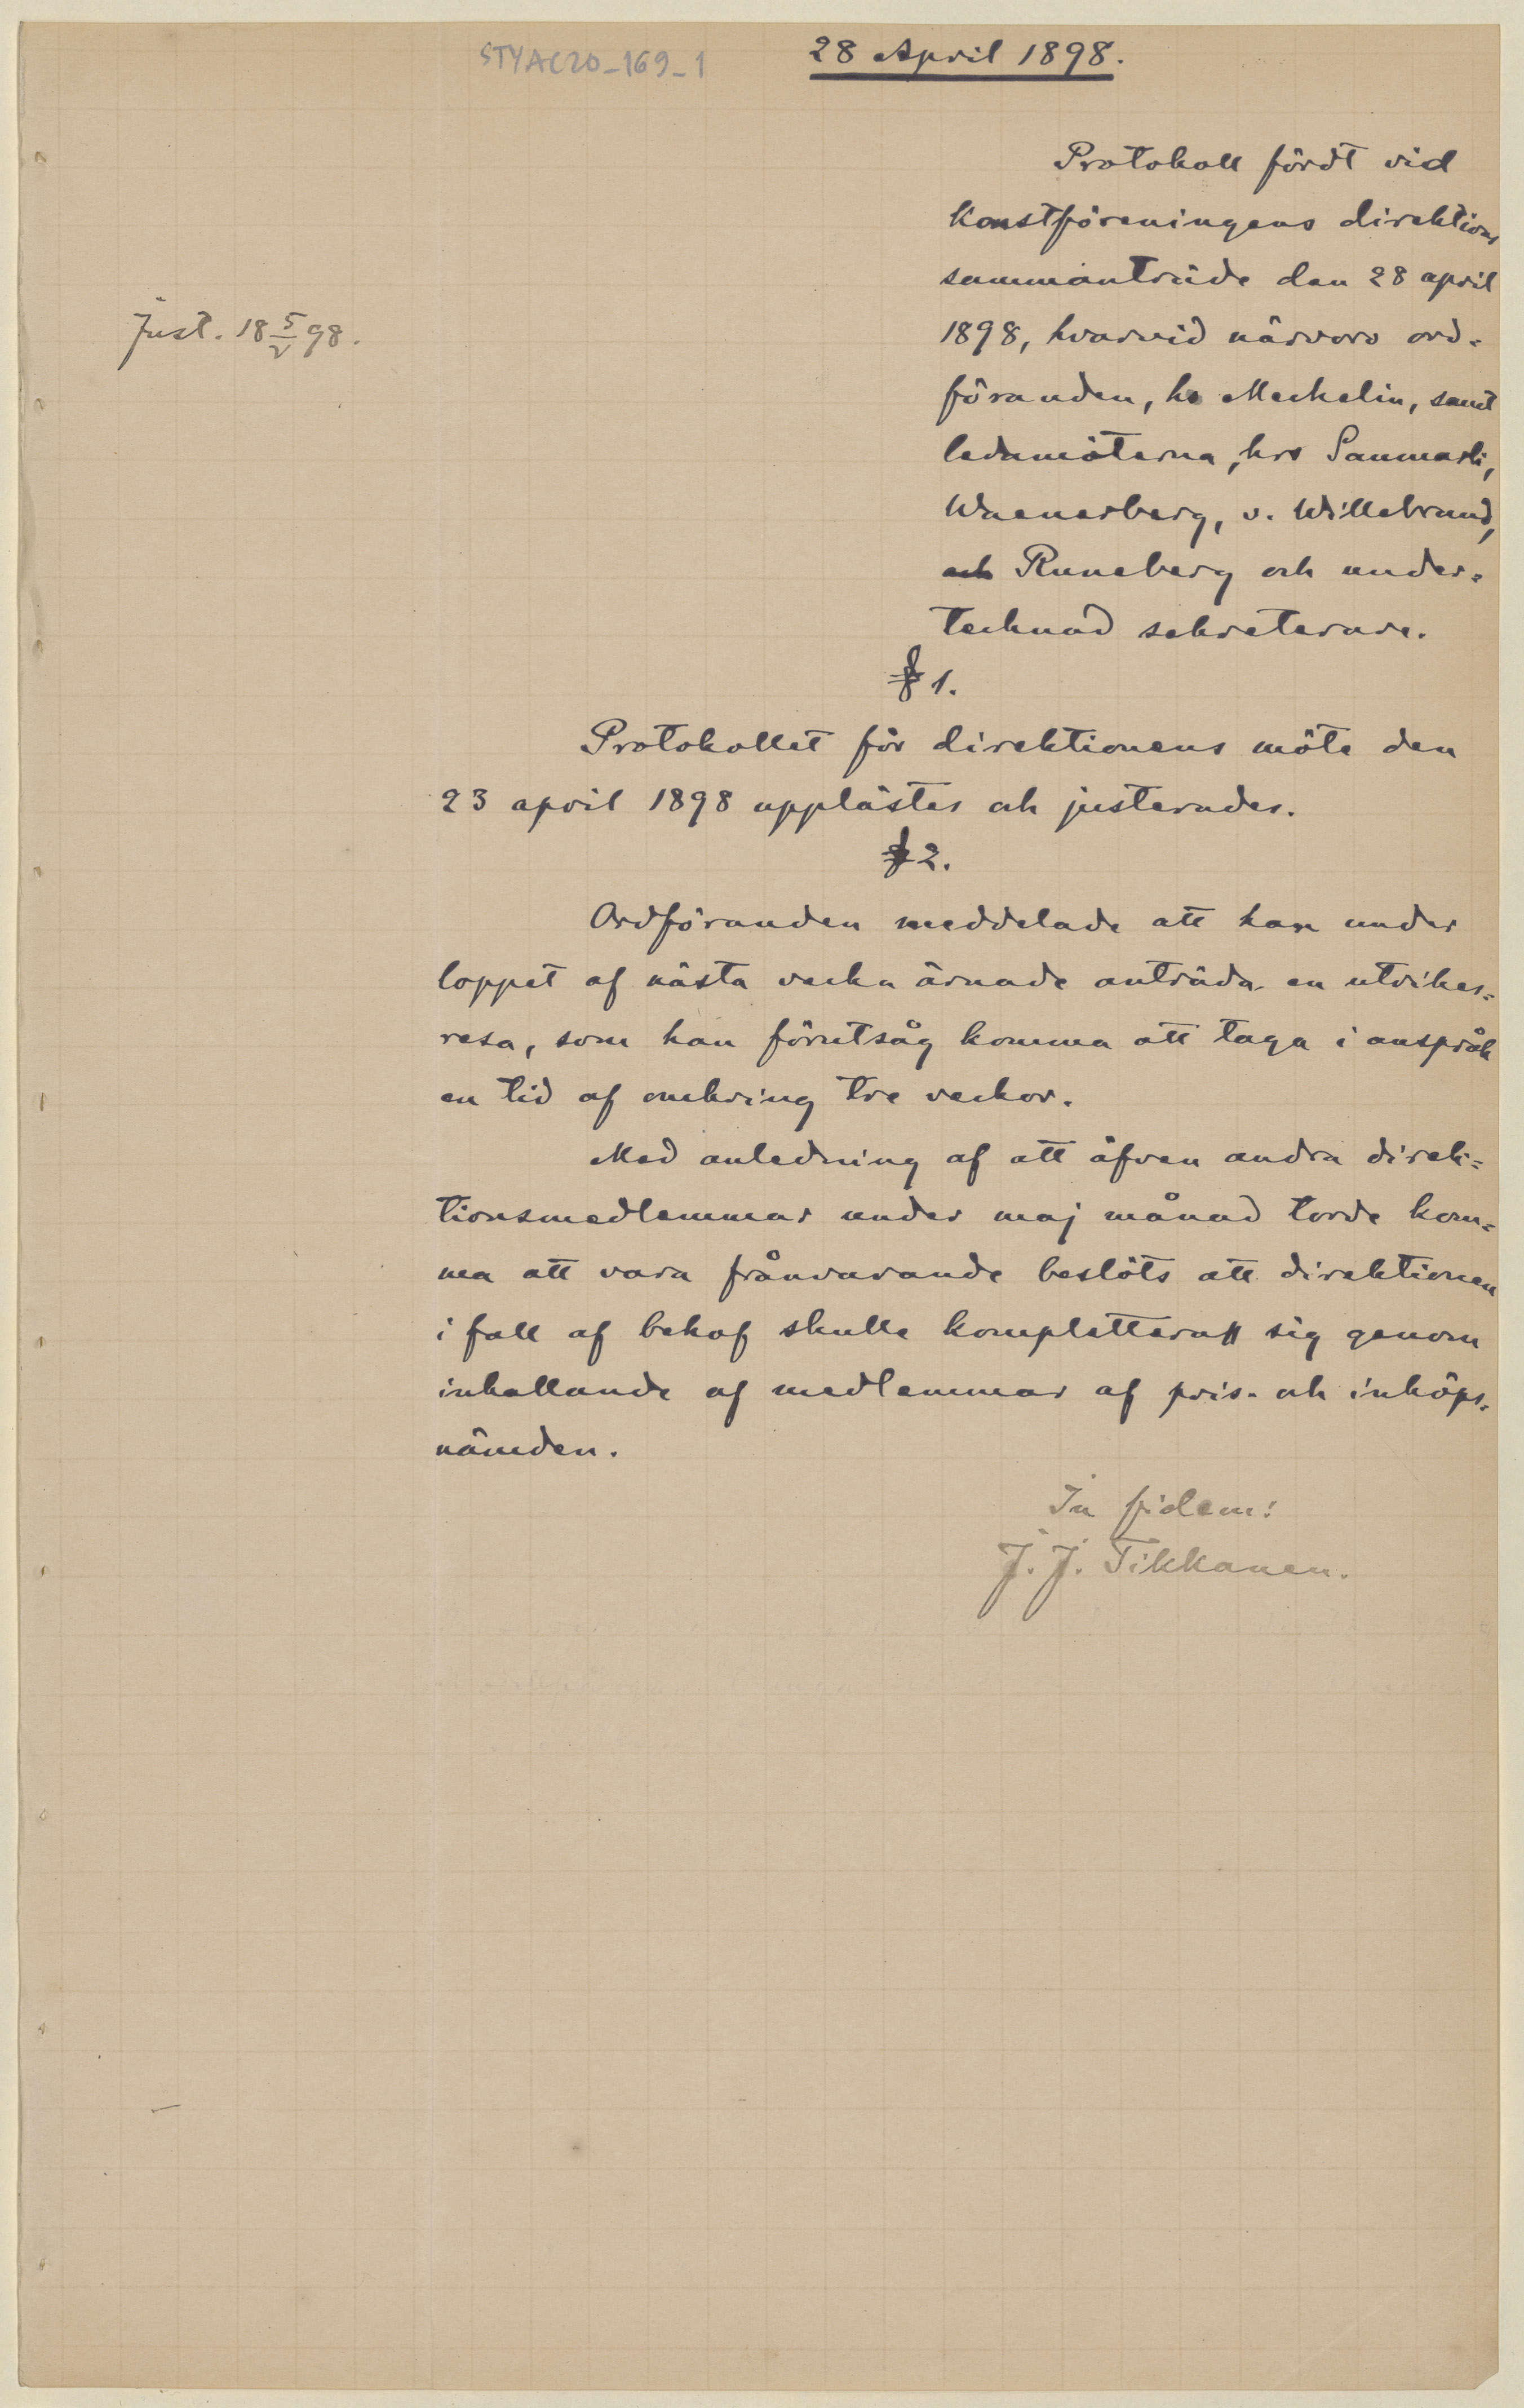 STYAC20_169_1
28 April 1898.
Protokoll fördt vid
konstföreningens direktions
sammanträde den 28 april
1898, hvarvid närvoro ord-
föranden, hr Mechelin, samt
ledamöterna, hrr Sanmark,
Waenerberg, v. Willebrand,
och Runeberg och under-
tecknad sekreterare.
Just. 18 5/V 98.
§ 1.
Protokollet för direktionens möte den
23 april 1898 upplästes och justerades.
§ 2.
Ordföranden meddelade att han under
loppet af nästa vecka ärnade anträda en utrikes-
resa, som han förutsåg komma att taga i anspråk
en tid af omkring tre veckor.
Med anledning af att äfven andra direk-
tionsmedlemmar under maj månad torde kom-
ma att vara frånvarande beslöts att direktionen
i fall af behof skulle komplettera sig genom
inkallande af medlemmar af pris- och inköps-
nämden.
In fidem:
J. J. Tikkanen.